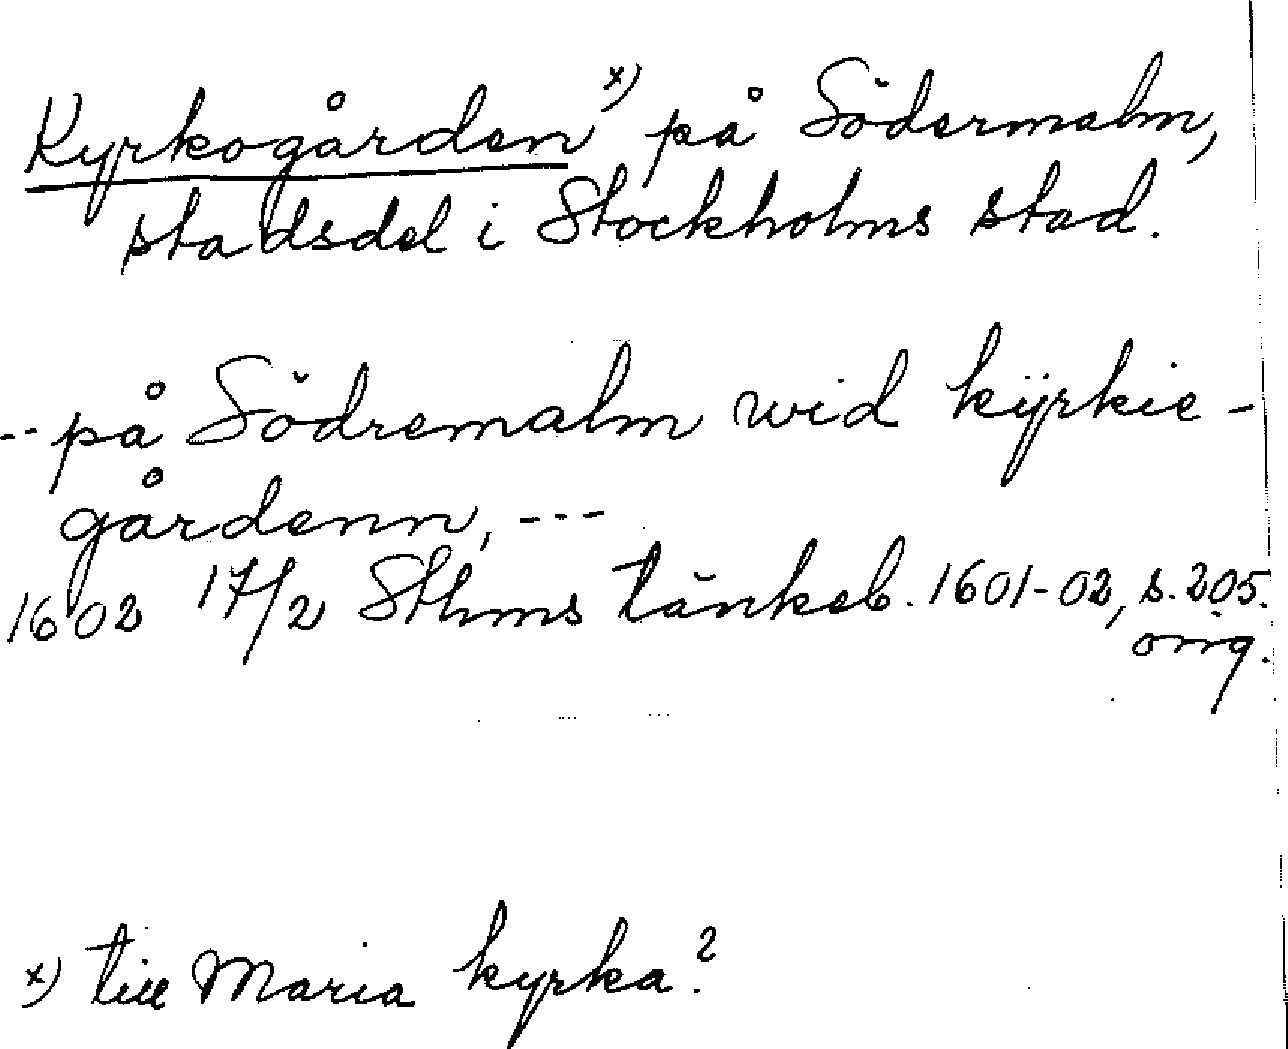 Kyrkogården x) på Södermalm,
stadsdel i Stockholms stad.
-- på Södremalm wid kÿrkie-
gårdenn, ---
1602 17/2 Sthms tänkeb. 1601-02, s. 205.
orig.
x) till Maria kyrka?